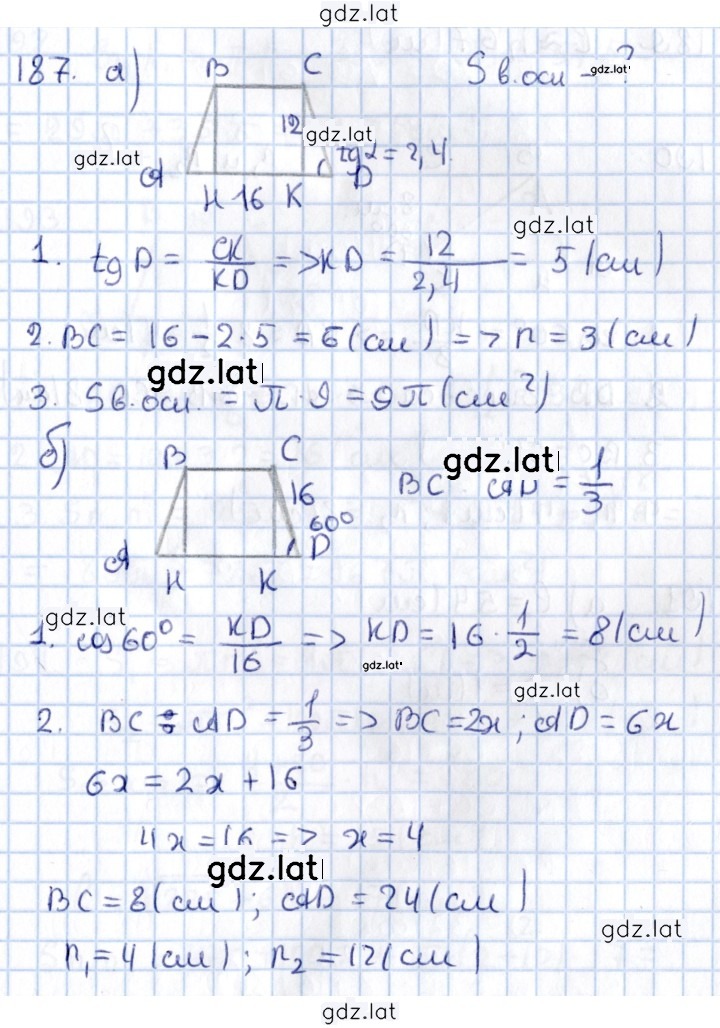 gdz.lat
187. а) B C Sв.осн - ?
gdz.lat
12 gdz.lat
gdz.lat tgα = 2,4.
A H 16 K D
gdz.lat
1. tg D = CK/KD => KD = 12/2,4 = 5 (см)
2. BC = 16 - 2·5 = 6 (см) => r = 3 (см)
gdz.lat
3. Sв.осн. = π · 9 = 9π (см²)
б) B C gdz.lat
16 BC AD = 1/3
60°
A H K D
gdz.lat
1. cos 60° = KD/16 => KD = 16 · 1/2 = 8 (см)
gdz.lat
gdz.lat
2. BC : AD = 1/3 => BC = 2x ; AD = 6x
6x = 2x + 16
4x = 16 => x = 4
gdz.lat
BC = 8 (см) ; AD = 24 (см)
gdz.lat
r₁ = 4 (см) ; r₂ = 12 (см)
gdz.lat